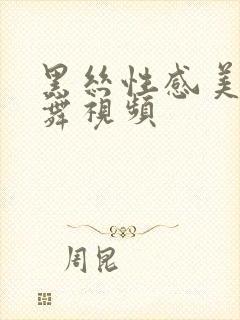 黑丝性感美
舞視頻
周昆